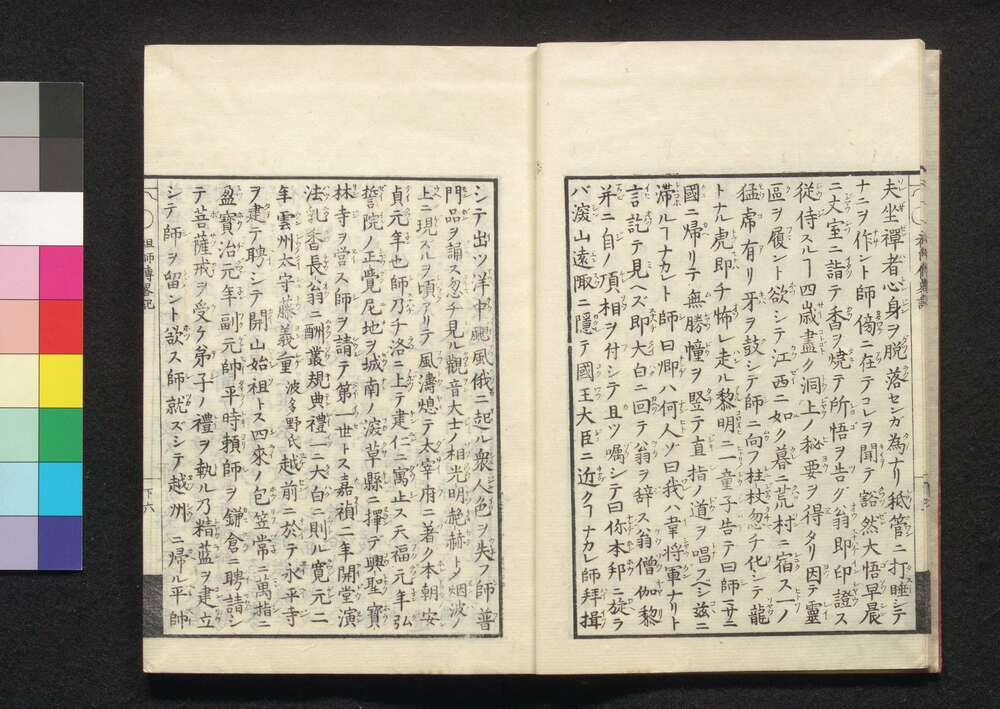 夫坐禪者心身ヲ脱落センガ為ナリ祇管ニ打睡シテ
ナニヲ作ント師傍ニ在テコレヲ聞テ豁然大悟早晨
ニ丈室ニ詣テ香ヲ燒テ所悟ヲ告グ翁即印證ス
從侍スルヿ四歳盡ク洞上ノ秘要ヲ得タリ因テ靈
區ヲ履ント欲シテ江西ニ如ク暮ニ荒村ニ宿ス一ノ
猛虎有リ牙ヲ鼓シテ師ニ向フ柱杖忽チ化シテ龍
トナル虎即チ怖レ走ル黎明ニ一童子告テ曰師ニ
國ニ帰リテ無勝幢ヲ竪テ直指ノ道ヲ唱スベシ茲ニ
滯ルヿナカレト師曰卿ハ何人ゾ曰我ハ韋将軍ナリト
言訖テ見ヘズ即大白ニ回テ翁ヲ辞ス翁僧伽黎
并ニ自ノ頂相ヲ付シテ且ツ嘱シテ曰你本邦ニ旋ラ
バ深山遠陬ニ隠テ國王大臣ニ近クヿナカレ師拜揖
シテ出ツ洋中颶風俄ニ起ル衆人色ヲ失フ師普
門品ヲ誦ス忽チ見ル觀音大士ノ相光明赩赫トメ烟波ノ
上ニ現スルヲ頃アリテ風濤熄テ太宰府ニ著ク本朝安
貞元年也師乃チ洛ニ上テ建仁ニ寓止ス天福元年弘
誓院ノ正覺尼地ヲ城南ノ深草縣ニ擇テ興聖寶
林寺ヲ営ス師ヲ請テ第一世トス嘉禎二年開堂演
法乳香長翁ニ酬叢規典禮一ニ大白ニ則ル寛元二
年雲州太守藤義重波多野氏越前ニ於テ永平寺
ヲ建テ聘シテ開山始祖トス四來ノ包笠常ニ萬指ニ
盈寶治元年副元帥平時頼師ヲ鎌倉ニ聘請シ
テ菩薩戒ヲ受ケ弟子ノ禮ヲ執ル乃精藍ヲ建立
シテ師ヲ留ント欲ス師就ズシテ越州ニ帰ル平帥
祖師傳畧記
下六